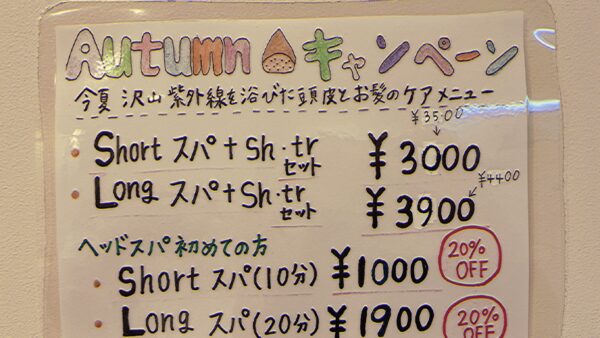 Autumn キャンペーン
今夏 沢山 紫外線を浴びた頭皮とお髪のケアメニュー
¥3500
・Short スパ+Sh・tr セット ¥3000
¥4400
・Long スパ+Sh・tr セット ¥3900
ヘッドスパ初めての方
・Short スパ(10分) ¥1000 20% OFF
・Long スパ(20分) ¥1900 20% OFF